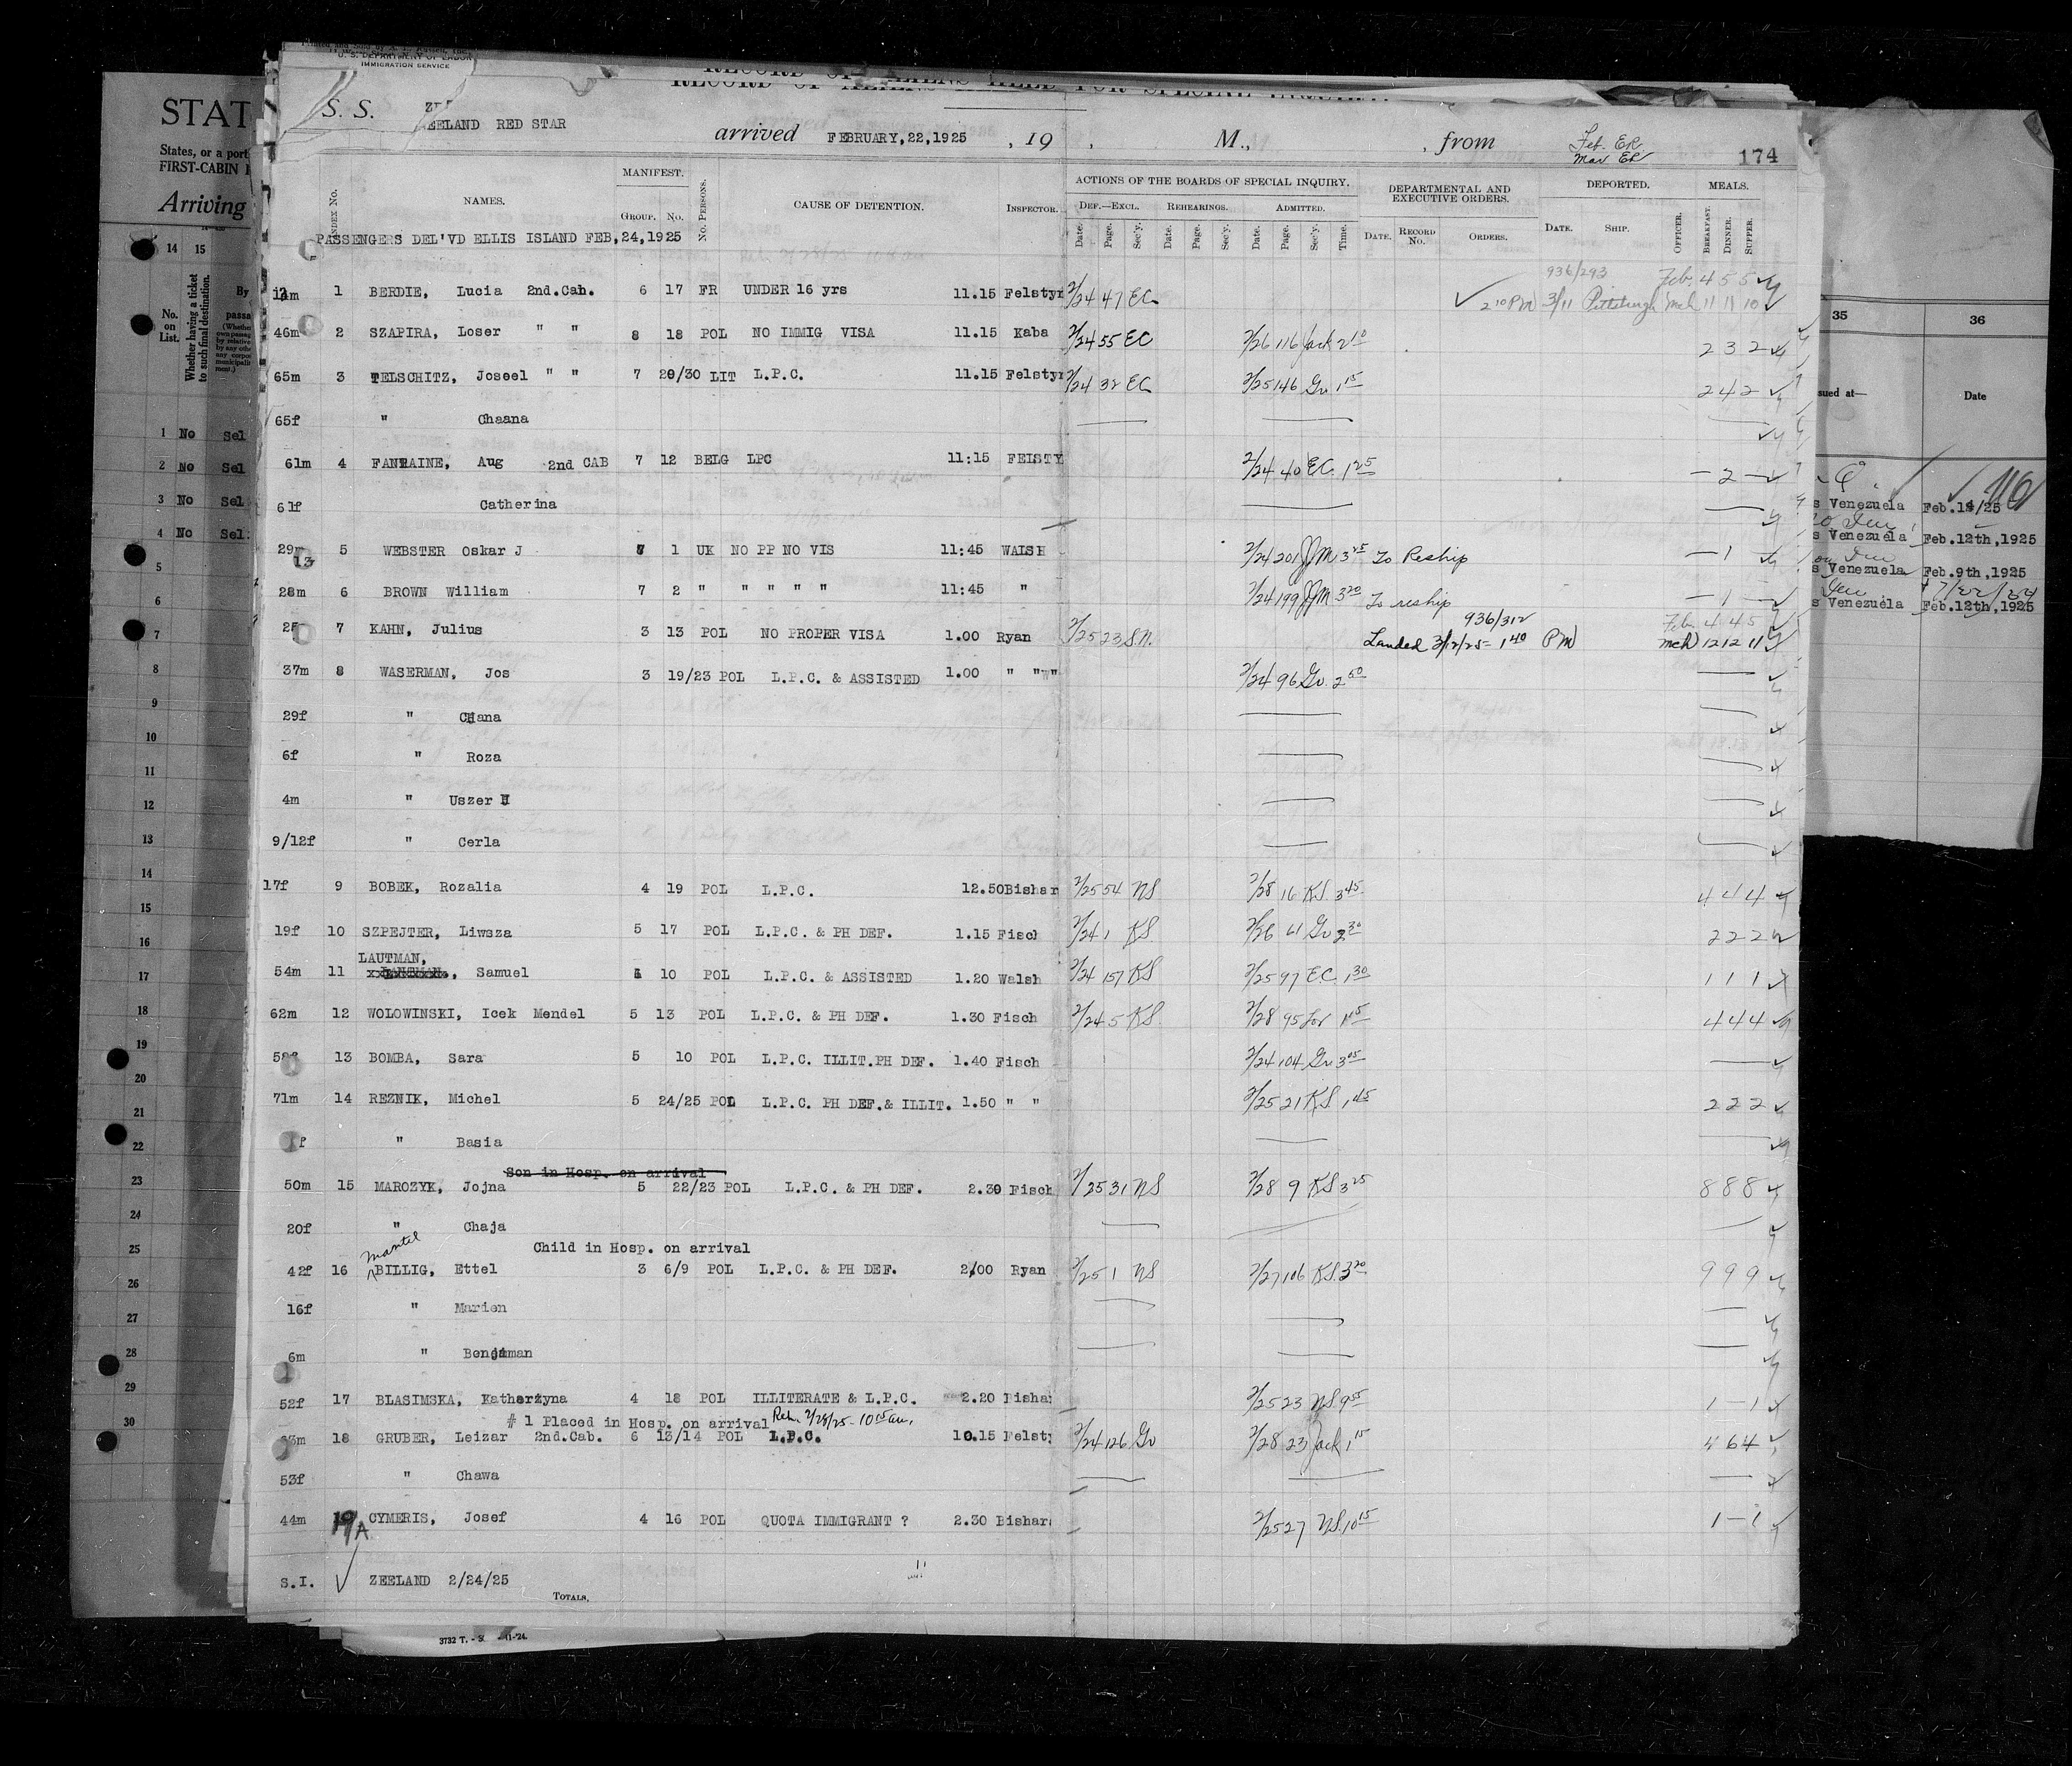 U. S. DEPARTMENT OF LABOR
IMMIGRATION SERVICE
S. S. ZEELAND RED STAR arrived FEBRUARY,22,1925 , 19 , M., , from Feb. ER
Mar ER 174
INDEX No. NAMES. MANIFEST. GROUP. No. No. PERSONS. CAUSE OF DETENTION. INSPECTOR.
ACTIONS OF THE BOARDS OF SPECIAL INQUIRY. DEF.—EXCL. REHEARINGS. ADMITTED.
Date. Page. Sec'y. Date. Page. Sec'y. Date. Page. Sec'y. Time.
DEPARTMENTAL AND EXECUTIVE ORDERS. DATE. RECORD No. ORDERS.
DEPORTED. DATE. SHIP. OFFICER. MEALS. BREAKFAST. DINNER. SUPPER.
PASSENGERS DEL'VD ELLIS ISLAND FEB,24,1925
936/293 Feb. 4 5 5
1 BERDIE, Lucia 2nd.Cab. 6 17 FR UNDER 16 yrs 11.15 Felstyn 2/24 47 EC ✓ 2 10 PM 3/11 Pittsburgh Mch 11 11 10
46m 2 SZAPIRA, Loser " " 8 18 POL NO IMMIG VISA 11.15 Kaba 2/24 55 EC 2/26 116 Jack 2 10 2 3 2
65m 3 TELSCHITZ, Joseel " " 7 29/30 LIT L.P.C. 11.15 Felstyn 2/24 32 EC 2/25 146 Gv 1 15 2 4 2
65f " Chaana
61m 4 FANTAINE, Aug 2nd CAB 7 12 BELG LPC 11:15 FEISTY 2/24 40 EC. 1 25 — 2 —
61f Catherina
29m 5 WEBSTER Oskar J 7 1 UK NO PP NO VIS 11:45 WALSH 2/24 201 JJM 3 25 To Reship — 1 —
13
28m 6 BROWN William 7 2 " " " " " 11:45 " 2/24 199 JJM 3 20 To reship — 1 —
936/312 Feb. 4 4 5
25 7 KAHN, Julius 3 13 POL NO PROPER VISA 1.00 Ryan 2/25 23 S.N. Landed 3/12/25 - 1 40 PM Mch 12 12 11
37m 8 WASERMAN, Jos 3 19/23 POL L.P.C. & ASSISTED 1.00 " " " 2/24 96 Gv. 2 50
29f " Chana
6f " Roza
4m " Uszer
9/12f " Cerla
17f 9 BOBEK, Rozalia 4 19 POL L.P.C. 12.50 Bishar 2/25 54 NS 2/28 16 KS. 3 45 4 4 4
19f 10 SZPEJTER, Liwsza 5 17 POL L.P.C. & PH DEF. 1.15 Fisch 2/24 1 KS 2/26 61 Gv 2 30 2 2 2
LAUTMAN,
54m 11 , Samuel 10 POL L.P.C. & ASSISTED 1.20 Walsh 2/24 157 KS 2/25 97 E.C. 1 30 1 1 1
62m 12 WOLOWINSKI, Icek Mendel 5 13 POL L.P.C. & PH DEF. 1.30 Fisch 2/24 5 KS 2/28 95 4 4 4
58f 13 BOMBA, Sara 5 10 POL L.P.C. ILLIT.PH DEF. 1.40 Fisch 2/24 104 Gv 3 05
71m 14 REZNIK, Michel 5 24/25 POL L.P.C. PH DEF.& ILLIT. 1.50 " " 2/25 21 KS 1 45 2 2 2
f " Basia
Son in Hosp. on arrival
50m 15 MAROZYK, Jojna 5 22/23 POL L.P.C. & PH DEF. 2.30 Fisch 2/25 31 NS 2/28 9 KS 3 25 8 8 8
20f " Chaja
Mantel Child in Hosp. on arrival
42f 16 BILLIG, Ettel 3 6/9 POL L.P.C. & PH DEF. 2/00 Ryan 2/25 1 NS 2/27 106 KS. 3 20 9 9 9
16f " Marien
6m " Benjiman
52f 17 BLASIMSKA, Katharzyna 4 18 POL ILLITERATE & L.P.C. 2.20 Bishar 2/25 23 NS 9 55 1 — 1
# 1 Placed in Hosp. on arrival Reh. 2/28/25 - 10 15 am.
63m 18 GRUBER, Leizar 2nd.Cab. 6 13/14 POL L.P.C. 10.15 Felsty 2/24 126 Gv 2/28 23 Jack 1 15 4 6 4
53f " Chawa
44m 19 A CYMERIS, Josef 4 16 POL QUOTA IMMIGRANT ? 2.30 Bishar 2/25 27 NS. 10 15 1 — 1
S.I. ✓ ZEELAND 2/24/25
TOTALS,
3732 T.
STAT
States, or a port
FIRST-CABIN
Arriving
14 15
No. on List.
Whether having a ticket to such final destination.
By
1 No Sel
2 No Sel
3 No Sel
4 No Sel
5
6
7
8
9
10
11
12
13
14
15
16
17
18
19
20
21
22
23
24
25
26
27
28
29
30
35 36
sued at— Date
116
s Venezuela Feb.14/25
s Venezuela Feb.12th,1925
s Venezuela Feb.9th,1925
s Venezuela Feb.12th,1925